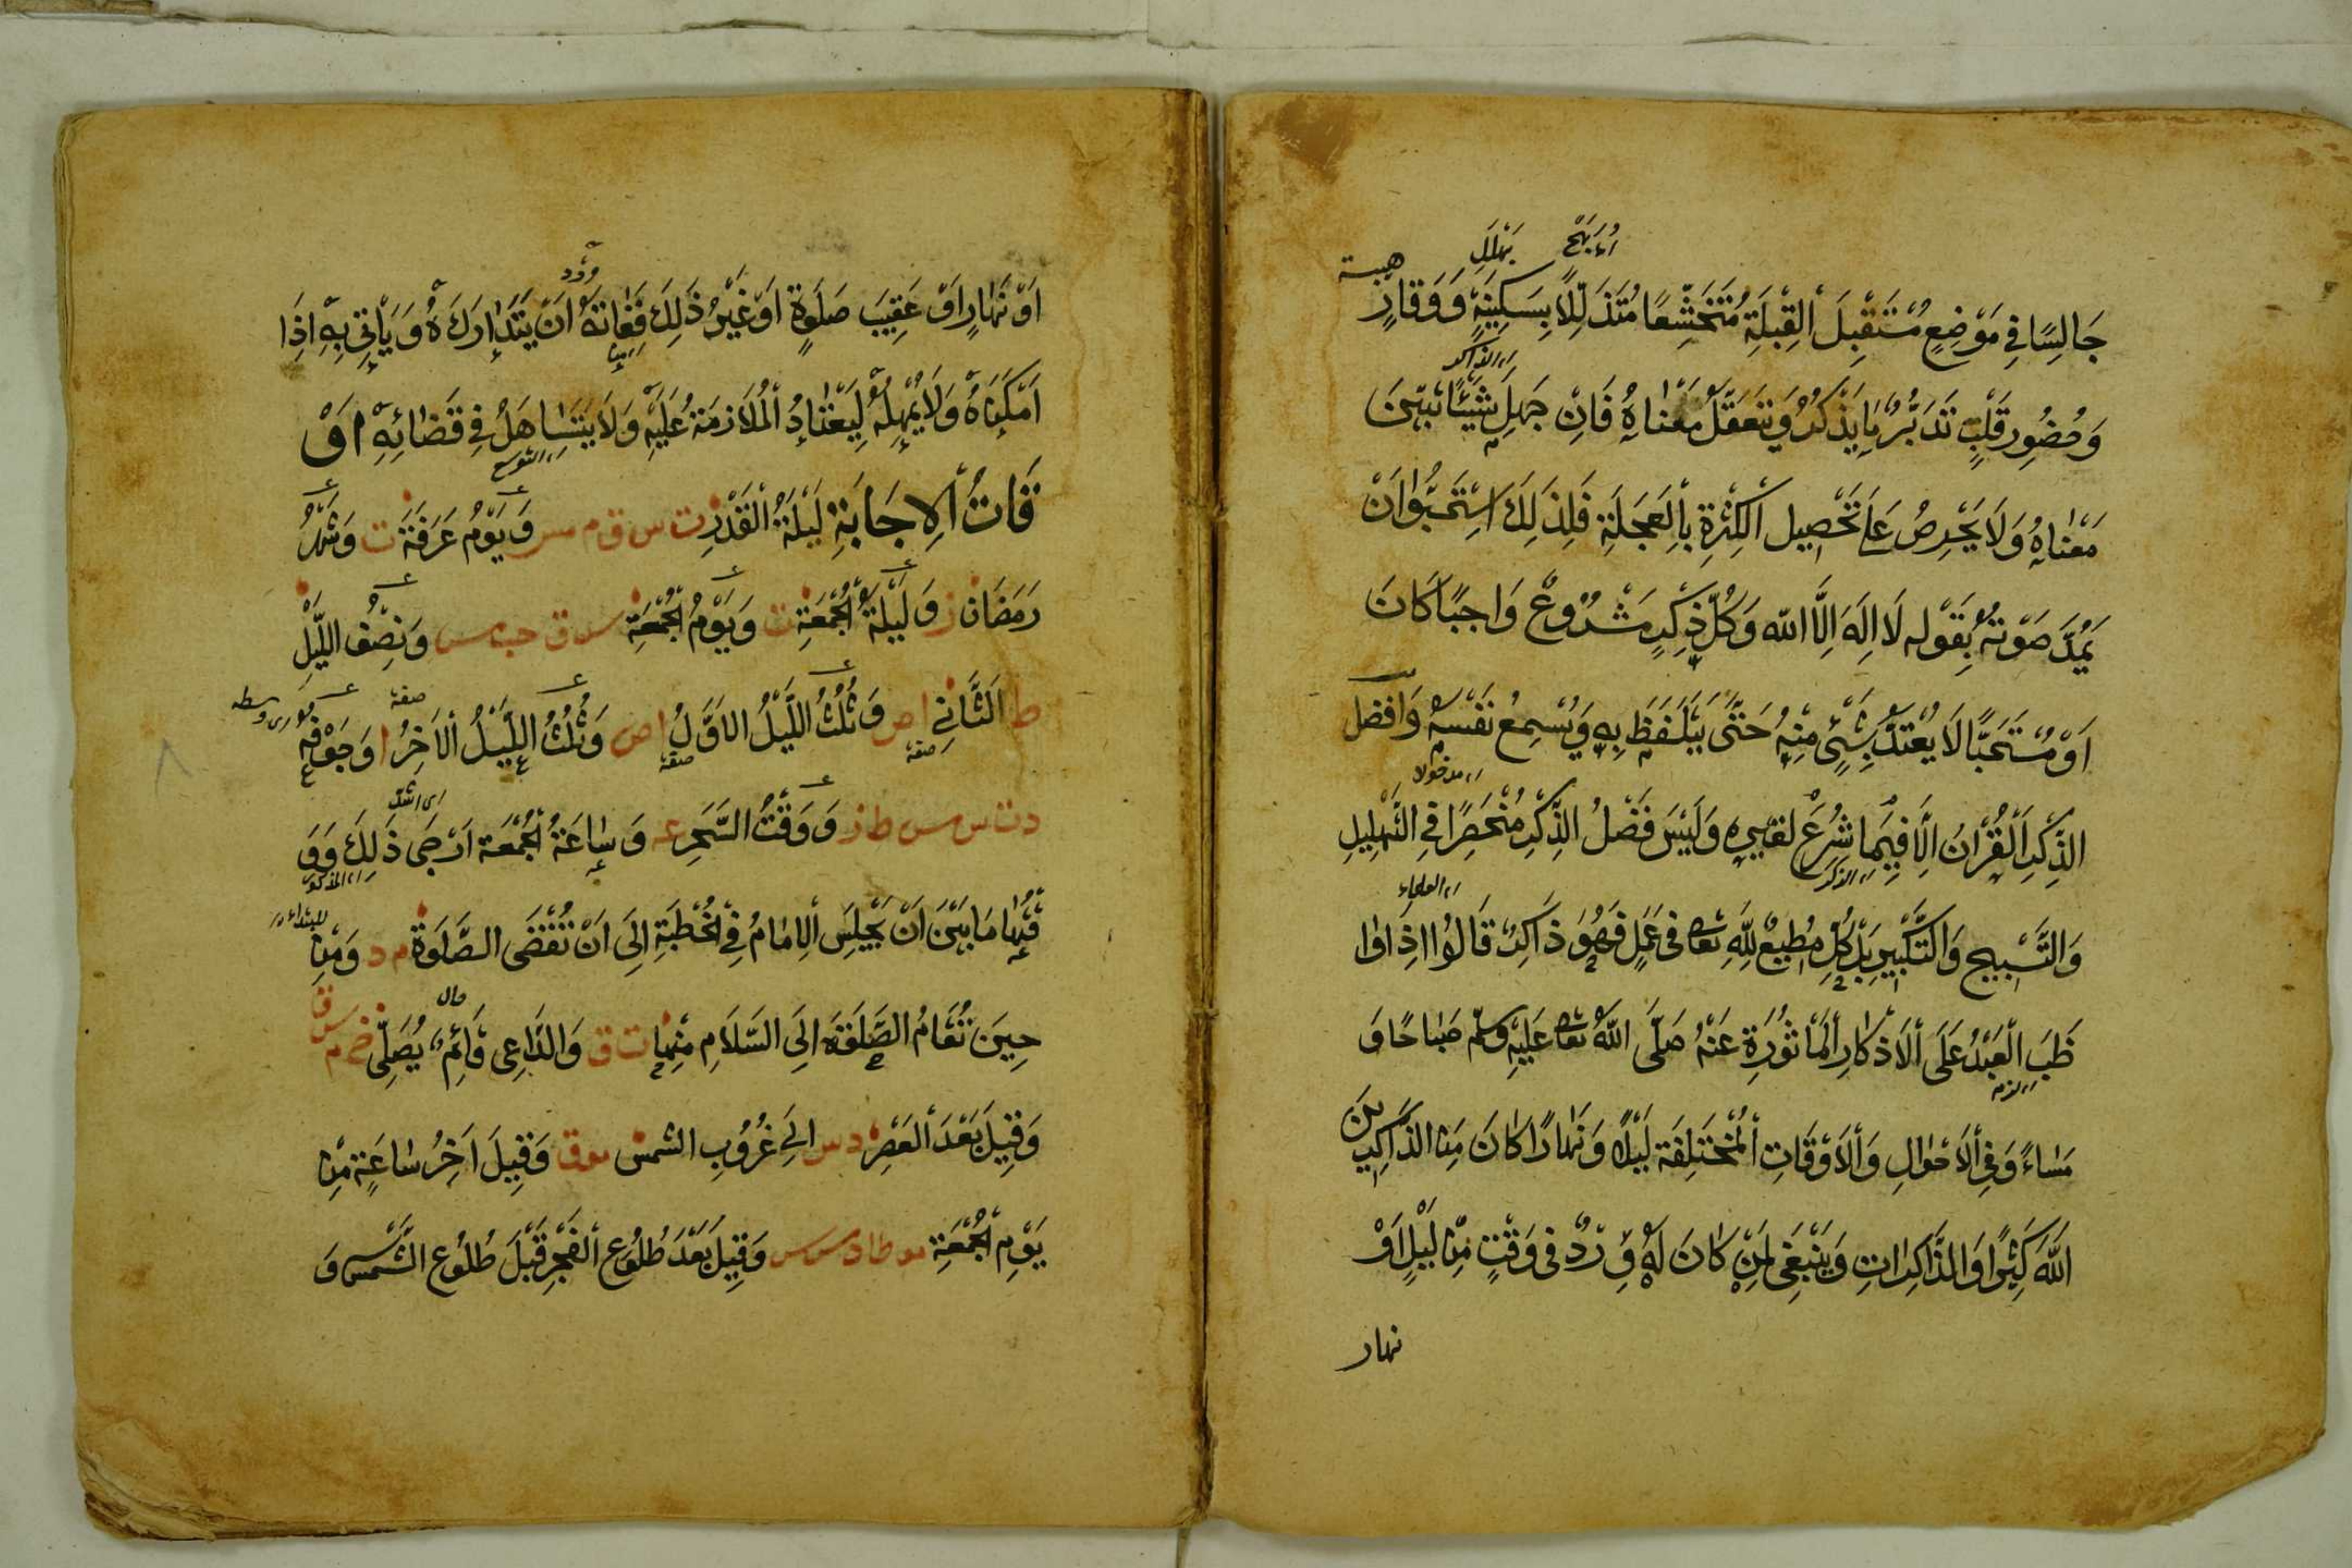 جَالِسًا فِي مَوْضِعٍ مُسْتَقْبِلَ الْقِبْلَةِ مُتَخَشِّعًا مُتَذَلِّلًا بِسَكِينَةٍ وَوَقَارٍ
هيبة
وَحُضُورِ قَلْبٍ تَدَبُّرُ مَا يَذْكُرُ وَيَتَعَقَّلُ مَعْنَاهُ فَاِنْ جَهِلَ شَيْئًا تَبَيَّنَ
اى الذاكر
مَعْنَاهُ وَلَا يَحْرِصُ عَلَى تَحْصِيلِ الْكَثْرَةِ بِالْعَجَلَةِ فَلِذٰلِكَ اسْتَحَبُّوا اَنْ
يَمُدَّ صَوْتَهُ بِقَوْلِه لَا اِلٰهَ اِلَّا اللّٰه وَكُلُّ ذِكْرٍ مَشْرُوعٌ وَاجِبًا كَانَ
اَوْ مُسْتَحَبًّا لَا يُعْتَدُّ بِشَيْءٍ مِنْهُ حَتّٰى يَتَلَفَّظَ بِهِ وَيُسْمِعَ نَفْسَهُ وَافضل
الذِّكْرِ الْقُرْاٰنُ اِلَّا فِيمَا شُرِعَ لِغَيْرِهِ وَلَيْسَ فَضْلُ الذِّكْرِ مُنْحَصِرًا فِي التَّهْلِيلِ
اى الذكر
وَالتَّسْبِيحِ وَالتَّكْبِيرِ بَلْ كُلُّ مُطِيعٍ لِلّٰهِ تعا فى عَمَلٍ فَهُوَ ذَاكِرٌ قَالُوا اِذَا وَا
اى العلماء
ظَبَ الْعَبْدُ عَلَى الْاَذْكَارِ الْمَاْثُورَةِ عَنْهُ صَلَّى اللّٰهُ تعا عَلَيْهِ وسلّم صَبَاحًا وَ
مَسَاءً وَفِي الْاَحْوَالِ وَالْاَوْقَاتِ الْمُخْتَلِفَةِ لَيْلًا وَنَهَارًا كَانَ مِنَ الذَّاكِرِينَ
اللّٰهَ كَثِيرًا وَالذَّاكِرَاتِ وَيَنْبَغِي لِمَنْ كَانَ لَهُ وِرْدٌ فى وَقْتٍ مِنْ لَيْلٍ اَوْ
نهار
اَوْ نَهَارٍ اَوْ عَقِيبَ صَلٰوةٍ اَوْ غَيْرُ ذٰلِكَ فَفَاتَهُ اَنْ يَتَدَارَكَهُ وَيَاْتِي بِهِ اِذَا
اَمْكَنَهُ وَلَا يُهْمِلْهُ لِيَعْتَادُ الْمُلَازَمَةَ عَلَيْهِ وَلَا يَتَسَاهَلُ فِي قَضَائِهِ اوْ
قَاتُ الْاِجَابَةِ لَيْلَةُ الْقَدْرِ ت س ق م مس وَيَوْمُ عَرَفَةَ ت وَشَهْرُ
رَمَضَانَ ز وَلَيْلَةُ الْجُمُعَةِ ت وَيَوْمُ الْجُمُعَةِ س ق حب مس وَنِصْفُ اللَّيْلِ
ط الثَّانِي ا ص وَثُلُثُ اللَّيْلُ الاَوَّلُ ا ص وَثُلُثُ اللَّيْلُ الْاَخِرُ ا وَجَوْفُهُ
صفة صفة صفة اى وسطه
د ت س مس ط ز وَوَقْتُ السَّحَرِ ع وَسَاعَةُ الْجُمُعَة اَرْجَى ذٰلِكَ وَوَ
قْتُهَا مَا بَيْنَ اَنْ يَجْلِسَ الْاِمَامُ فِي الْخُطْبَةِ اِلَى اَنْ تُقْضَى الصَّلٰوةُ م د وَمِنْ
حِينَ تُقَامُ الصَّلٰوةُ اِلَى السَّلَامِ مِنْهَا ت ق وَالدَّاعِى قَائِمٌ يُصَلِّى خ م س ق
حال
وَقِيلَ بَعْدَ الْعَصْرِ د س اِلَى غُرُوبِ الشمس مو ق وَقِيلَ اٰخِرُ سَاعَةٍ مِنْ
يَوْمِ الْجُمُعَةِ مو ط ا د س مس وَقِيلَ بَعْدَ طُلُوعِ الْفَجْرِ قَبْلَ طُلُوعِ الشَّمْسِ وَ